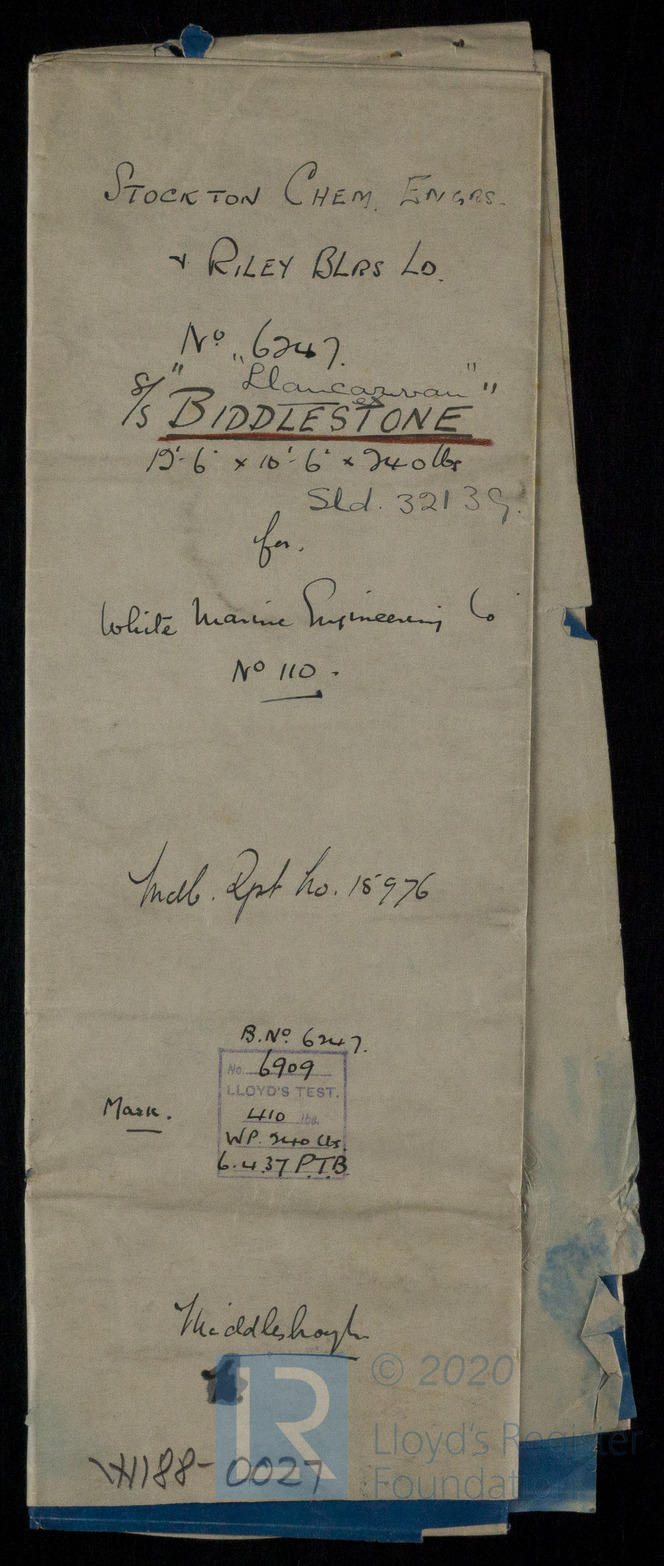 STOCKTON CHEM. ENGRS.
& RILEY BLRS LD.
No 6247.
"Llancarvan"
S/S "BIDDLESTONE"
ex
12'-6" x 10'-6" x 240 lbs
Sld. 32139.
for.
White Marine Engineering Co
No 110.
Mdb. Rpt No. 15976
B.No. 6247.
No. 6909
LLOYD'S TEST.
Mark.
410 lbs.
WP. 240 lbs.
6.4.37 P.T.B.
Middlesbrough
W188-0027
© 2020
Lloyd's Register
Foundation